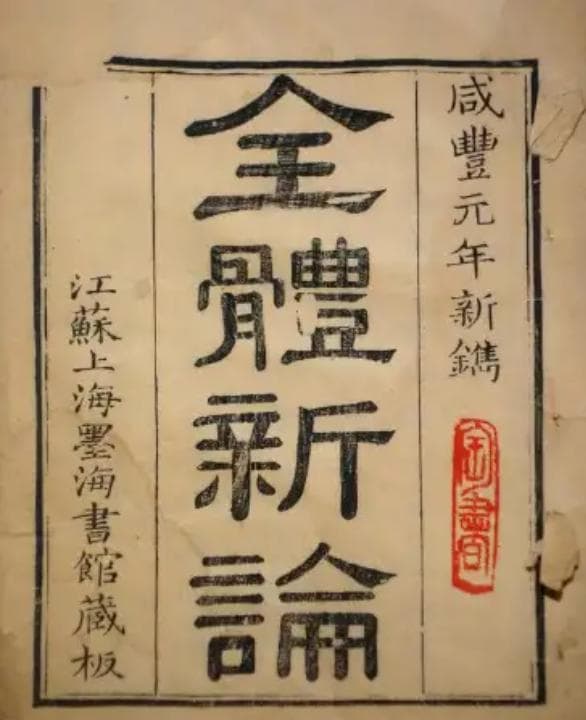 咸豐元年新鐫
全體新論
江蘇上海墨海書館蔵板